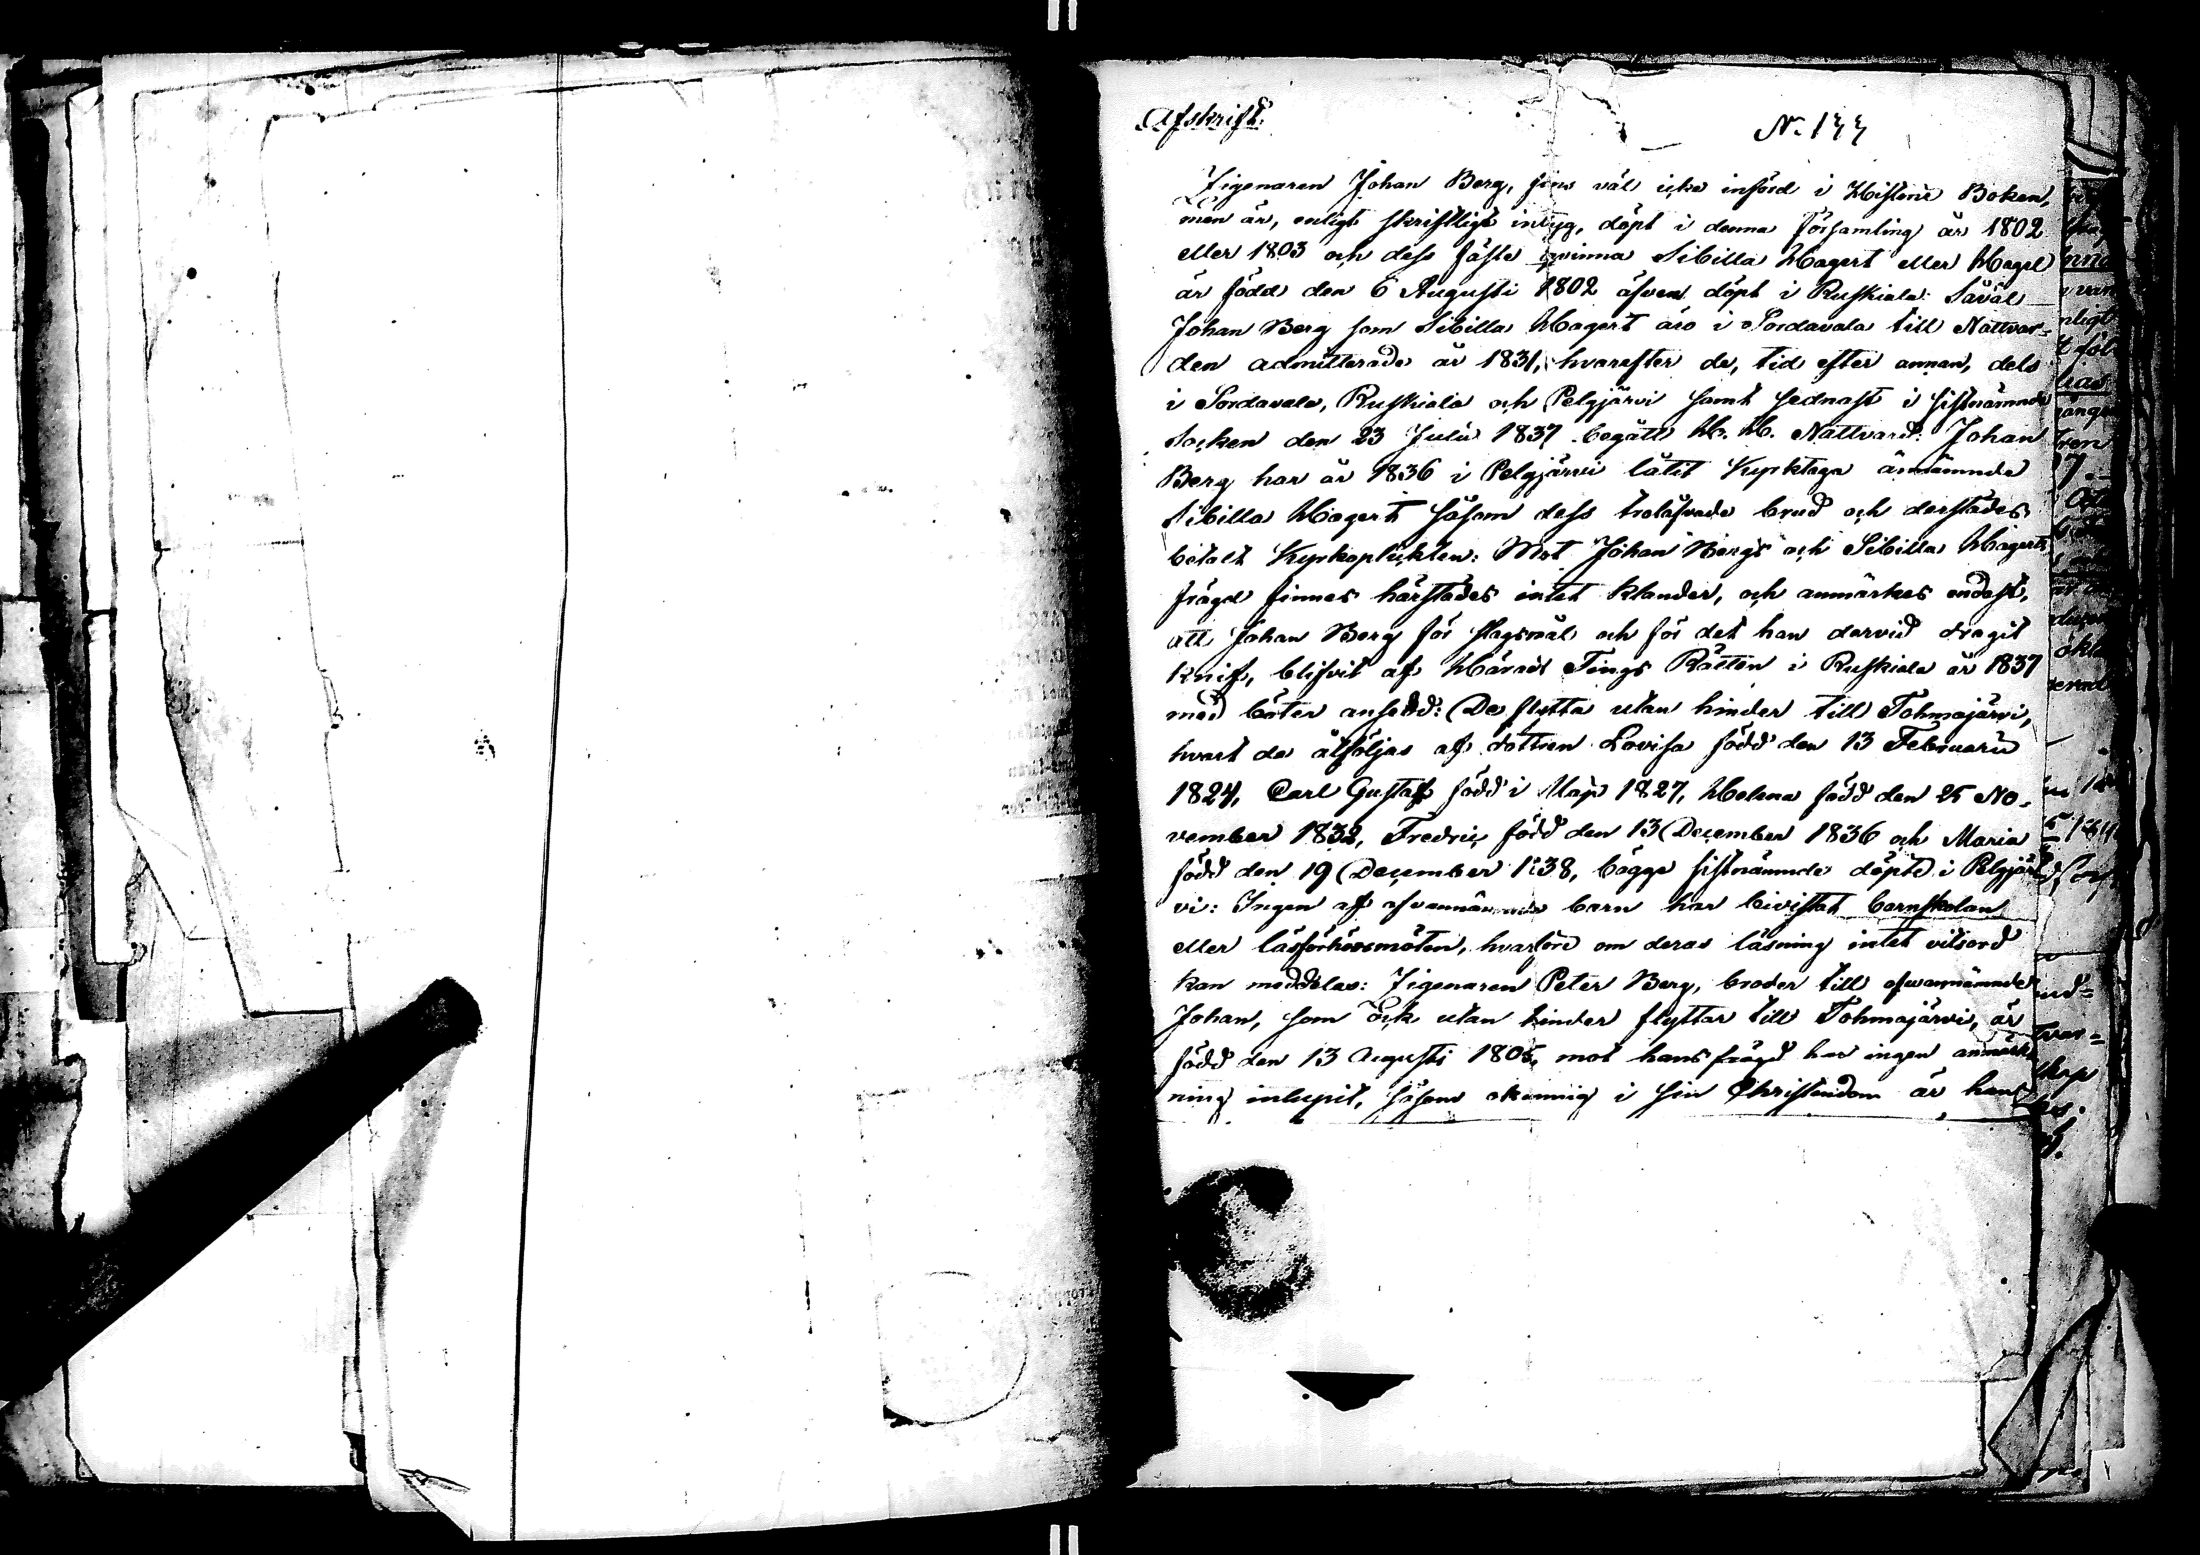 Afskrift.
N. 144
Zigenaren Johan Berg, fins väl icke införd i Historie Boken,
men är, enligt skriftligt intyg, döpt i denna församling år 1802
eller 1803 och dess fäste qvinna Sibilla Hagert eller Hagel
är född den 6 Augusti 1802 äfven döpt i Ruskiala: Såväl
Johan Berg som Sibilla Hagert äro i Sordavala till Nattvar-
den admitterade år 1831, hvarefter de, tid efter annan, dels
i Sordavala, Ruskiala och Pelgjärvi samt sednast i sistnämnde
Socken den 23 Julii 1837 begått H. H. Nattvard: Johan
Berg har år 1836 i Pelgjärvi låtit Kyrktaga ärnämnde
Sibilla Hagert såsom dess trolofvade brud och derstädes
betalt Kyrkoplickten: Mot Johan Bergs och Sibilla Hagerts
frägd finnes härstädes intet klander, och anmärkes endast,
att Johan Berg för slagsmål och för det han dervid dragit
knif, blifvit af Härads Tings Rätten i Ruskiala år 1837
med böter ansedd: De flytta utan hinder till Tohmajärvi,
hvart de åtföljas af dottren Lovisa född den 13 Februarii
1824, Carl Gustaf född i Maji 1827, Helena född den 25 No-
vember 1832, Fredric född den 13 December 1836 och Maria
född den 19 December 1838, bägge sistnämnde döpte i Pelgjär
vi: Ingen af ofvannämnde barn har bevistat barnskolan
eller läsförhörsmöten, hvarföre om deras läsning intet vitsord
kan meddelas: Zigenaren Peter Berg, broder till ofvannämnde
Johan, som ock utan hinder flyttar till Tohmajärvi, är
född den 13 Augusti 1805, mot hans frägd har ingen anmärk
ning inlupit, såsom okunnig i sin Christendom är han